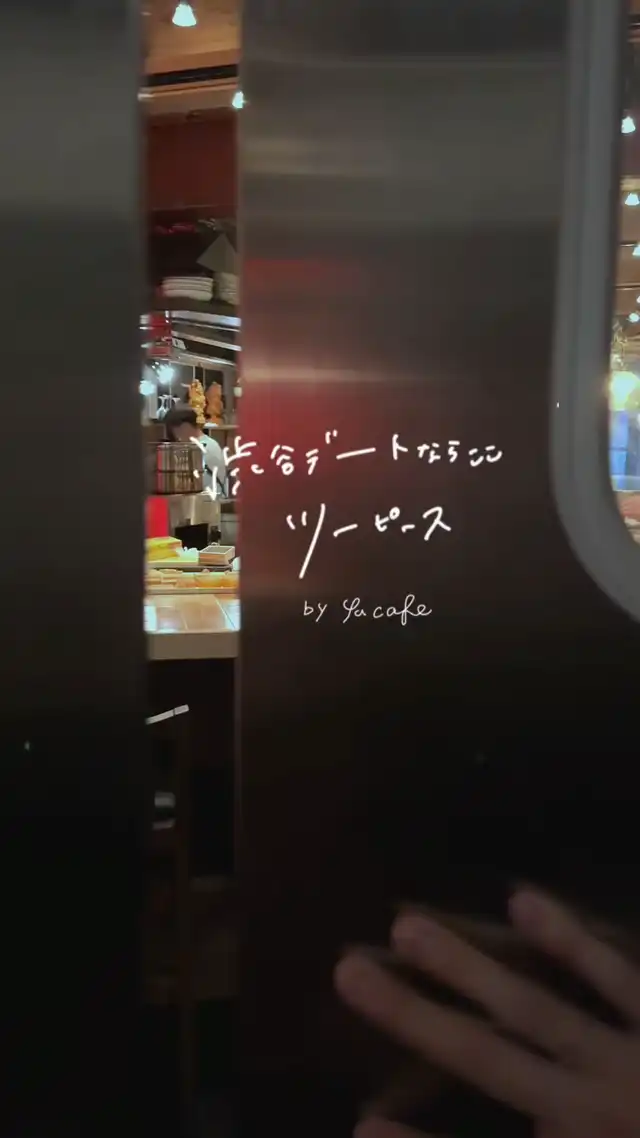 渋谷デートならここ
ツーピース
by yucafe